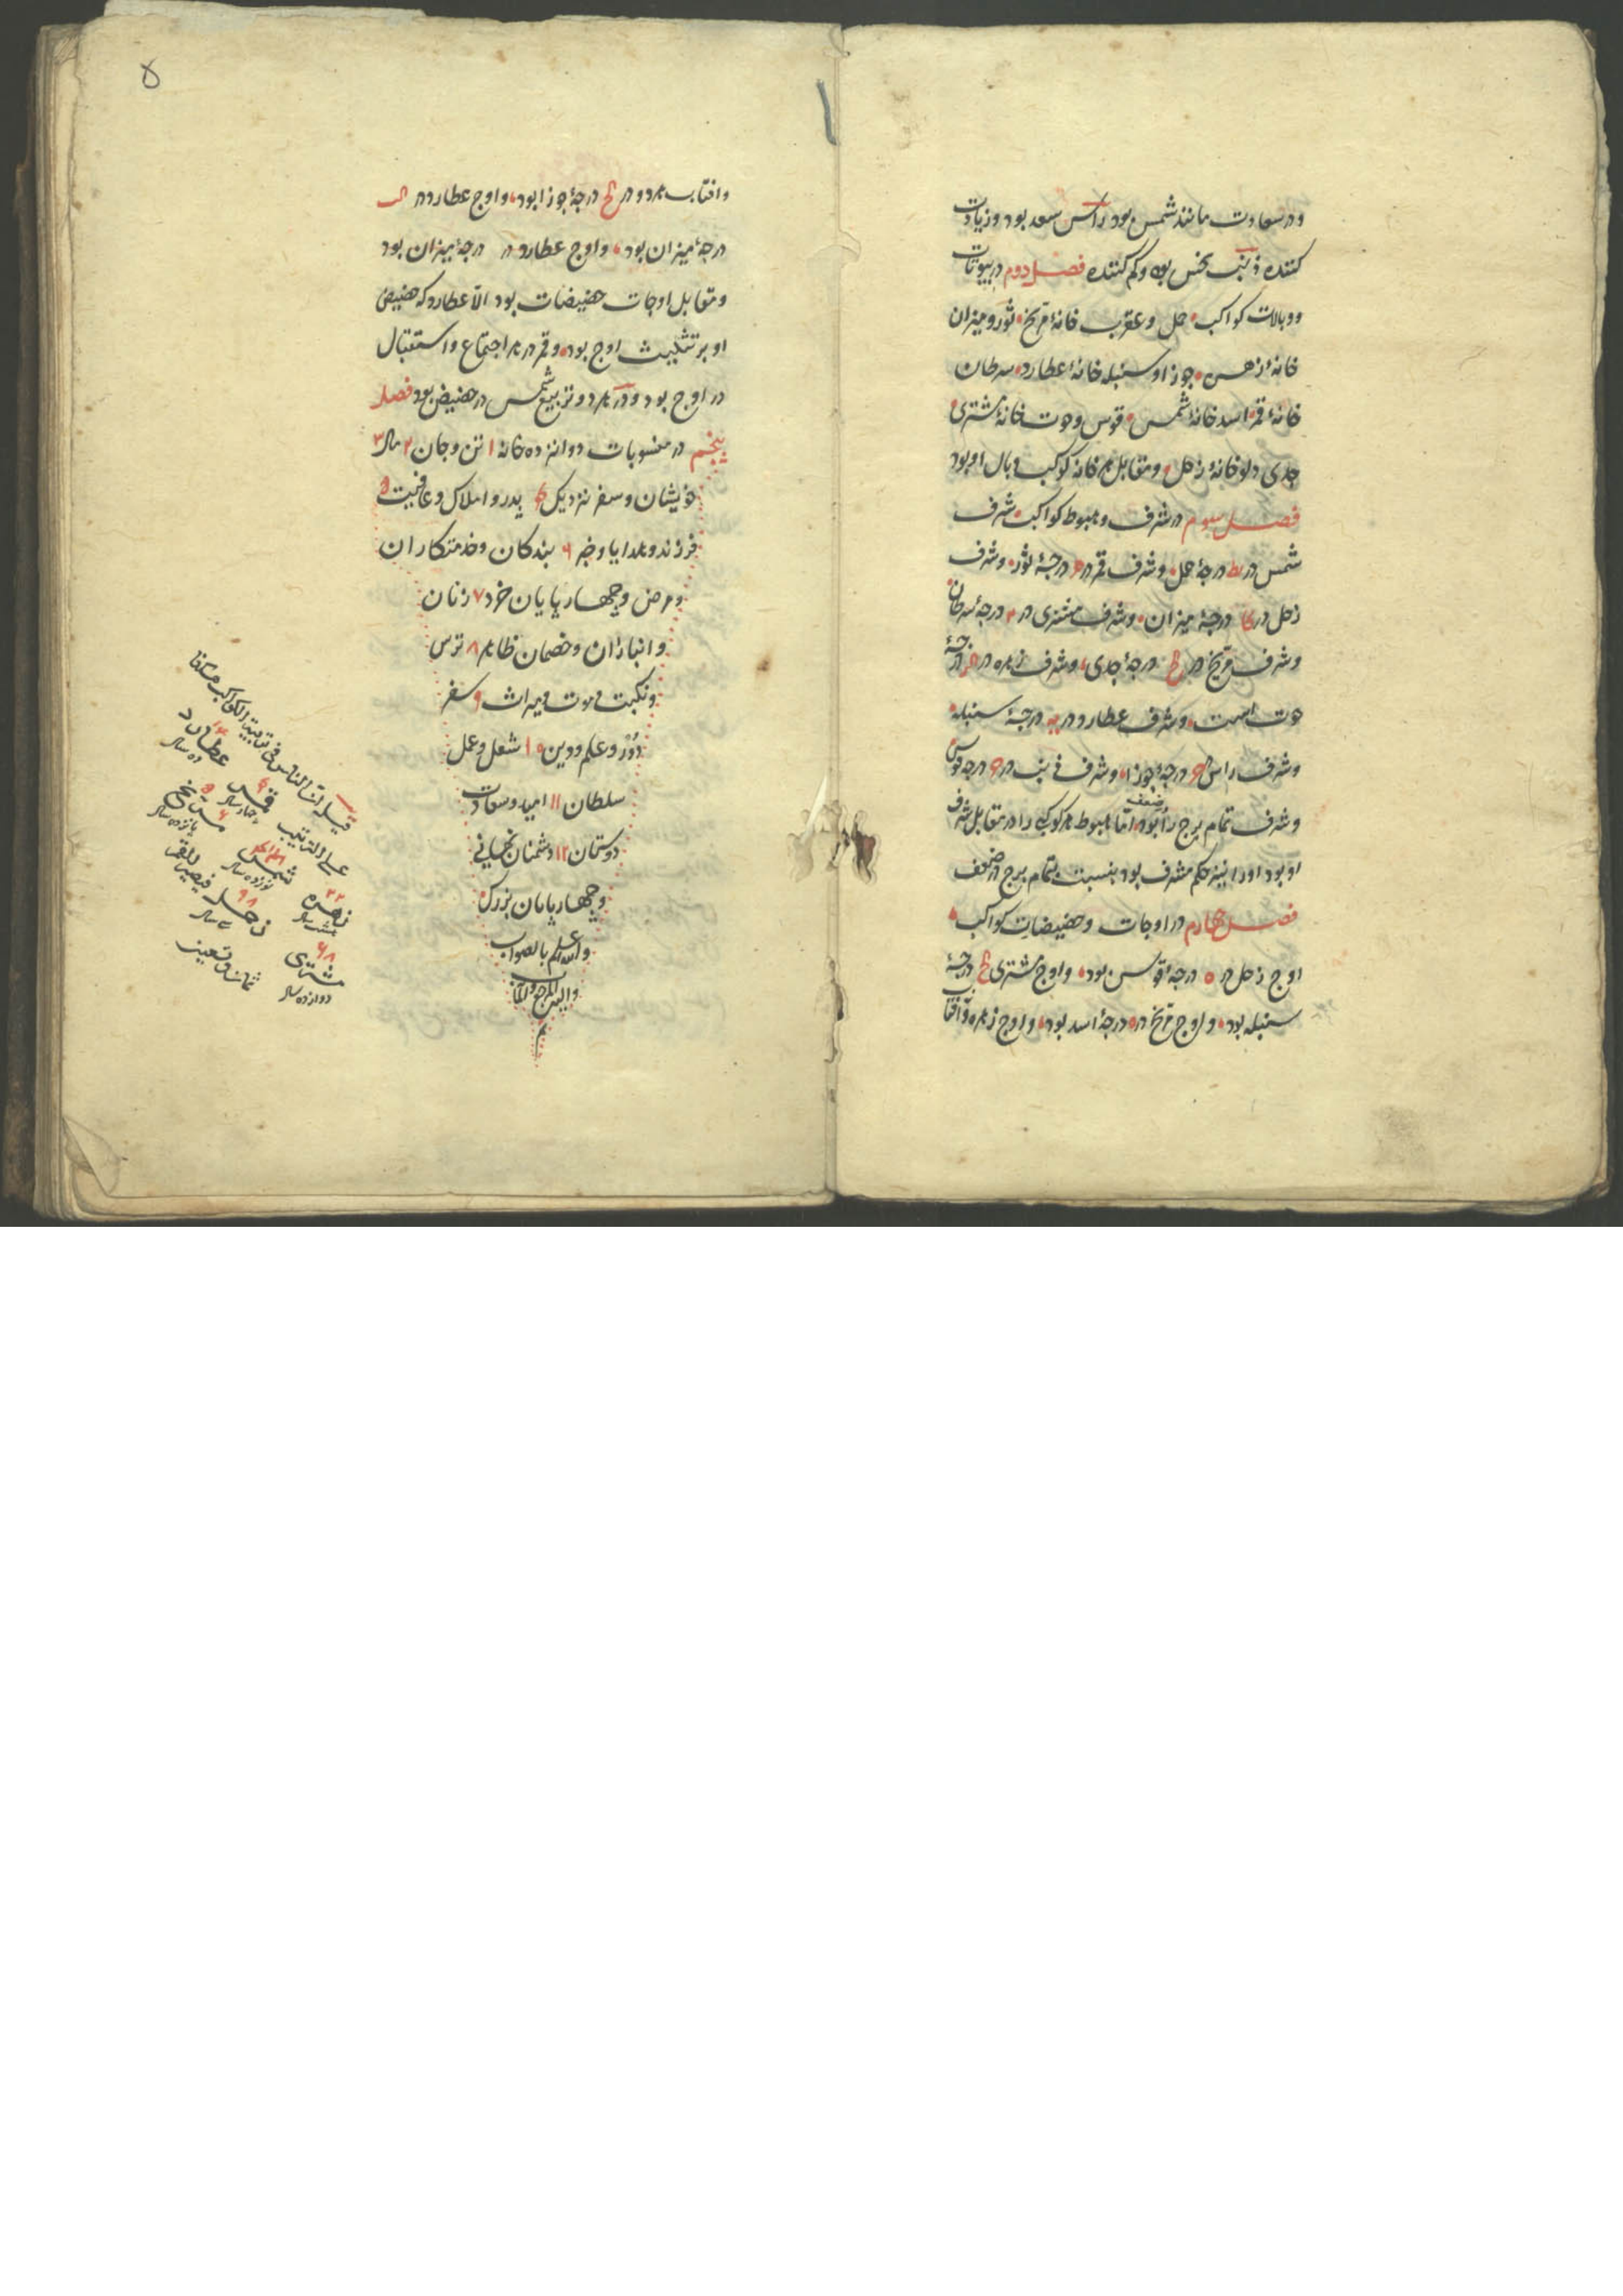 ودر سعادت مانند شمس بود راس سعد بود وزیادت
کننده ذنب نحس بود وکم کننده فصل دوم در بیوتات
ووبالات کواکب حمل وعقرب خانهٔ مریخ ثور ومیزان
خانهٔ زهره جوزا وسنبله خانهٔ عطارد سرطان
خانهٔ قمر اسد خانهٔ شمس قوس وحوت خانهٔ مشتری
جدی دلو خانهٔ زحل ومقابل هر خانه کوکب وبال او بود
فصل سیوم در شرف وهبوط کواکب شرف
شمس در یط درجهٔ حمل وشرف قمر در ۳ درجهٔ ثور وشرف
زحل در کا درجهٔ میزان وشرف مشتری در درجهٔ سرطان
وشرف مریخ در کح درجهٔ جدی وشرف زهره در کز درجهٔ
حوت است وشرف عطارد در یه درجهٔ سنبله
وشرف راس درجهٔ جوزا وشرف ذنب در درجه قوس
وشرف تمام برج را بود اما هبوط هر کوکبی را در مقابل شرف
او بود اورا نیز حکم شرف بود بنسبت تمام برج در ضعف
فصل چهارم در اوجات وحضیضات کواکب
اوج زحل در ٥ درجهٔ قوس بود واوج مشتری کح درجهٔ
سنبله بود واوج مریخ در درجهٔ اسد بود واوج زهره وآفتاب
۵
وافتاب هر دو در کح درجهٔ جوزا بود واوج عطارد در
درجهٔ میزان بود واوج عطارد در درجهٔ میزان بود
ومقابل اوجات حضیضات بود الا عطارد که حضیض
او بر تثلیث اوج بود وقمر در هر اجتماع واستقبال
در اوج بود ودر هر دو تربیع شمس در حضیض بود فصل
پنجم در منسوبات دوازده خانه ۱ تن وجان ۲ مال ۳
خویشان وسفر نزدیک ۴ پدر واملاک وعاقبت ۵
فرزند وهدایا وخبر ۶ بندکان وخدمتکاران
ومرض وچهارپایان خرد ۷ زنان
وانبازان وخصمان ظاهر ۸ ترس
ونکبت وموت ومیراث ۹ سفر
دور وعلم ودین ۱۰ شغل وعمل
سلطان ۱۱ امید وسعادت
دوستان ۱۲ دشمنان
وچهارپایان بزرک
والله اعلم بالصواب
والیه المرجع والمآب
م
قیل ان الناس فی تربیة الکواکب
علی الترتیب قمر چهار سال عطارد ده سال
زهره هشت سال شمس نوزده سال مریخ پانزده سال
مشتری دوازده سال زحل سی سال
ثمان وتسعین